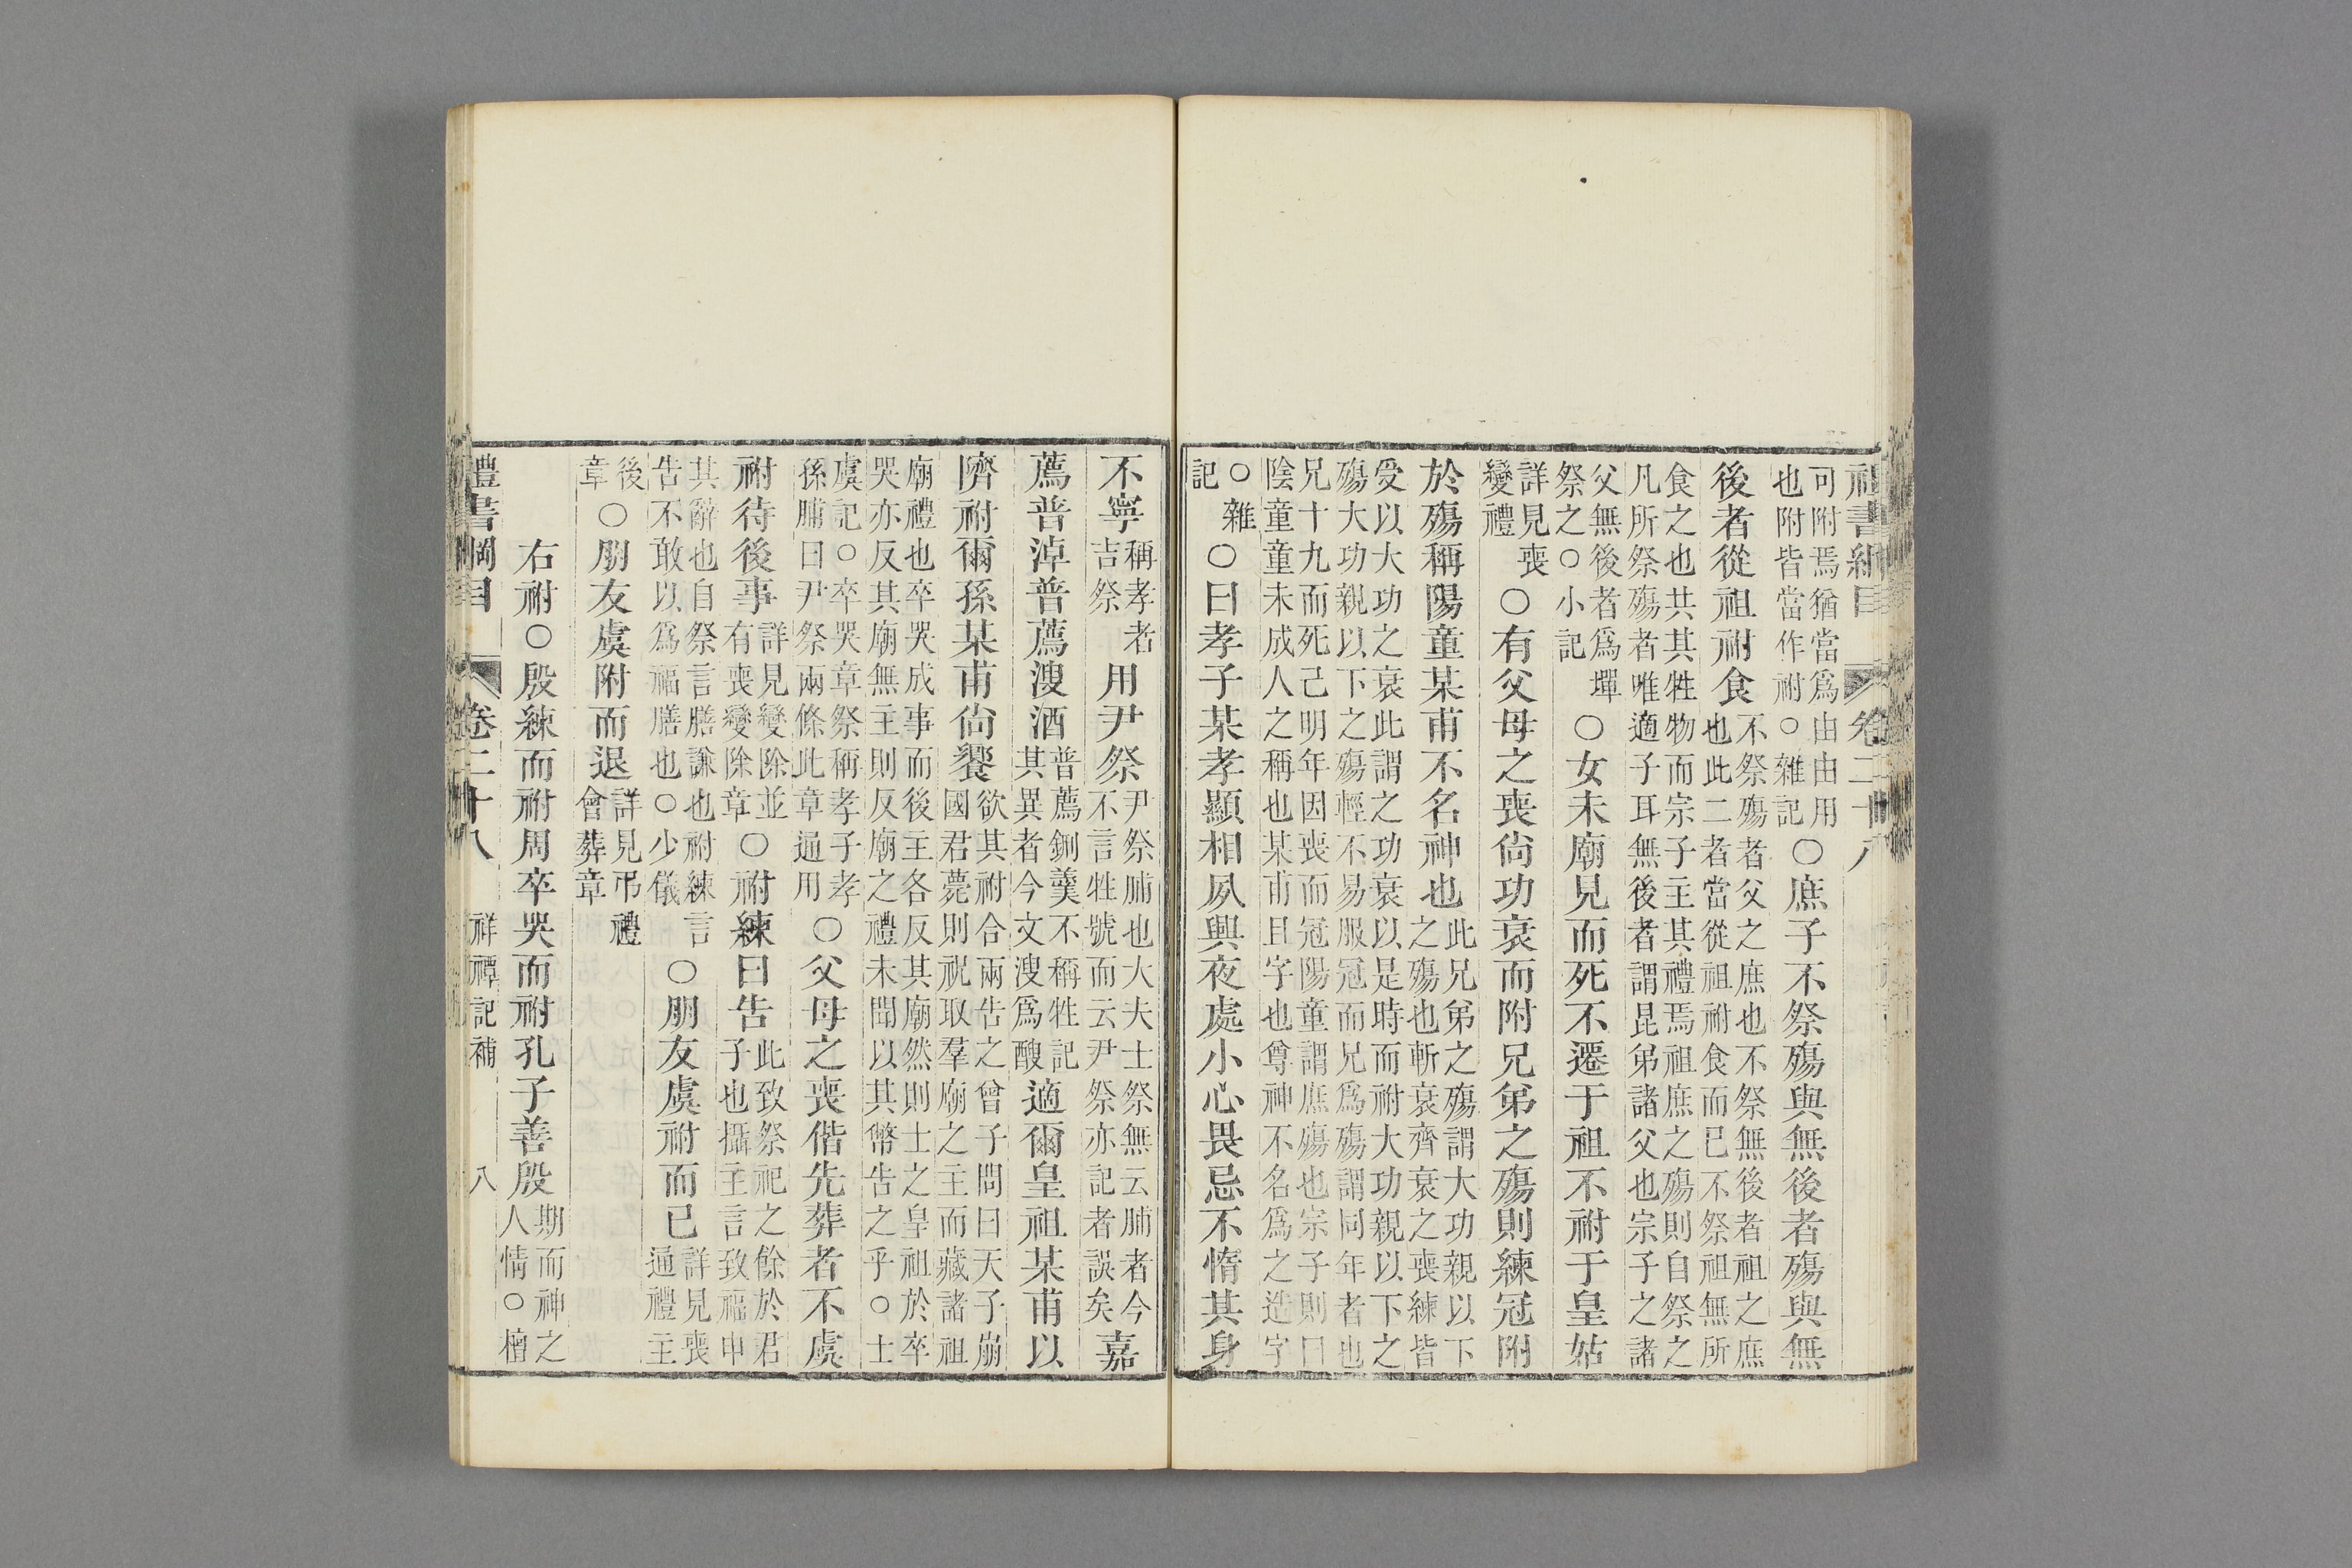 禮書綱目 卷二十八
可附焉猶當爲由由用
也附皆當作祔○雜記
○庶子不祭殤與無後者殤與無
後者從祖祔食
不祭殤者父之庶也不祭無後者祖之庶
也此二者當從祖祔食而已不祭祖無所
食之也共其牲物而宗子主其禮焉祖庶之殤則自祭之
凡所祭殤者唯適子耳無後者謂昆弟諸父也宗子之諸
父無後者爲墠
祭之○小記
○女未廟見而死不遷于祖不祔于皇姑
詳見喪
變禮
○有父母之喪尙功衰而附兄弟之殤則練冠附
於殤稱陽童某甫不名神也
此兄弟之殤謂大功親以下
之殤也斬衰齊衰之喪練皆
受以大功之衰此謂之功衰以是時而祔大功親以下之
殤大功親以下之殤輕不易服冠而兄爲殤謂同年者也
兄十九而死己明年因喪而冠陽童謂庶殤也宗子則曰
陰童童未成人之稱也某甫且字也尊神不名爲之造字
○雜
記
○曰孝子某孝顯相夙興夜處小心畏忌不惰其身
不寧
稱孝者
吉祭
用尹祭
尹祭脯也大夫士祭無云脯者今
不言牲號而云尹祭亦記者誤矣
嘉
薦普淖普薦溲酒
普薦鉶羹不稱牲記
其異者今文溲爲醙
適爾皇祖某甫以
隮祔爾孫某甫尙饗
欲其祔合兩告之曾子問曰天子崩
國君薨則祝取羣廟之主而藏諸祖
廟禮也卒哭成事而後主各反其廟然則士之皇祖於卒
哭亦反其廟無主則反廟之禮未聞以其幣告之乎○士
虞記○卒哭章祭稱孝子孝
孫脯曰尹祭兩條此章通用
○父母之喪偕先葬者不虞
祔待後事
詳見變除並
有喪變除章
○祔練曰告
此致祭祀之餘於君
子也攝主言致福申
其辭也自祭言膳謙也祔練言
告不敢以爲福膳也○少儀
○朋友虞祔而已
詳見喪
通禮主
後
章
○朋友虞附而退
詳見弔禮
會葬章
右祔○殷練而祔周卒哭而祔孔子善殷
期而神之
人情○檀
禮書綱目 卷二十八 祥禫記補 八